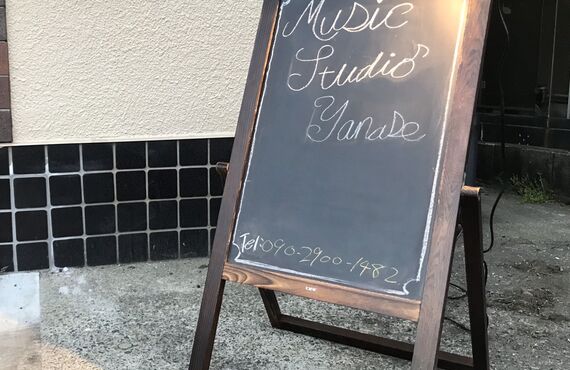 Music
Studio♪
Yanase
Tel:090-2900-1482